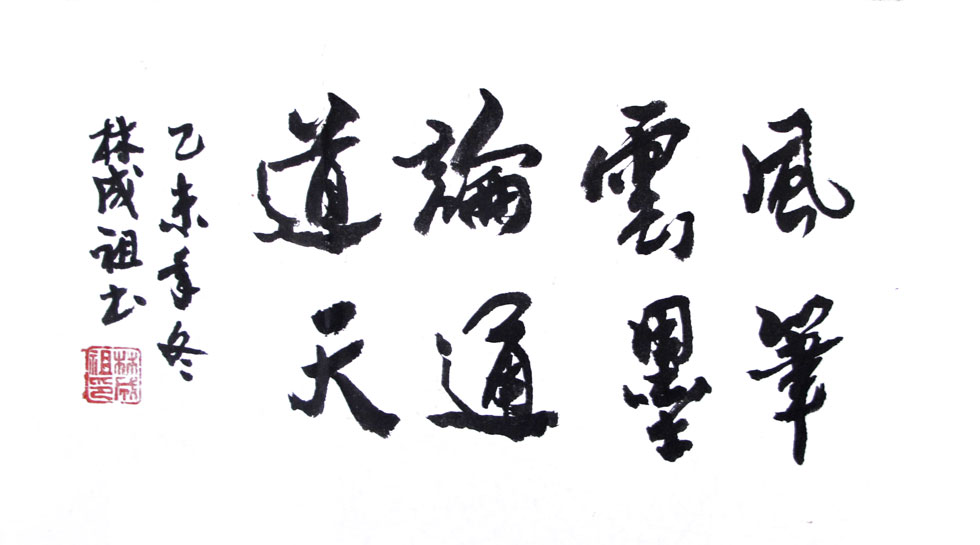 風雲論道
筆墨通天
乙未年冬
林成祖书
林成祖印